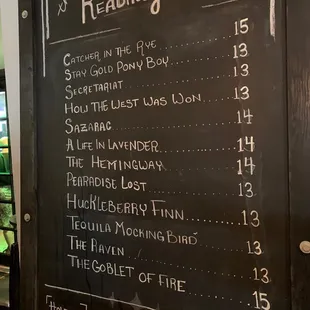 Catcher in the Rye .......... 15
Stay Gold Pony Boy .......... 13
Secretariat .......... 13
How the West Was Won .......... 13
Sazarac .......... 14
A Life in Lavender .......... 14
The Hemingway .......... 14
Pearadise Lost .......... 13
Huckleberry Finn .......... 13
Tequila Mocking Bird .......... 13
The Raven .......... 13
The Goblet of Fire .......... 15